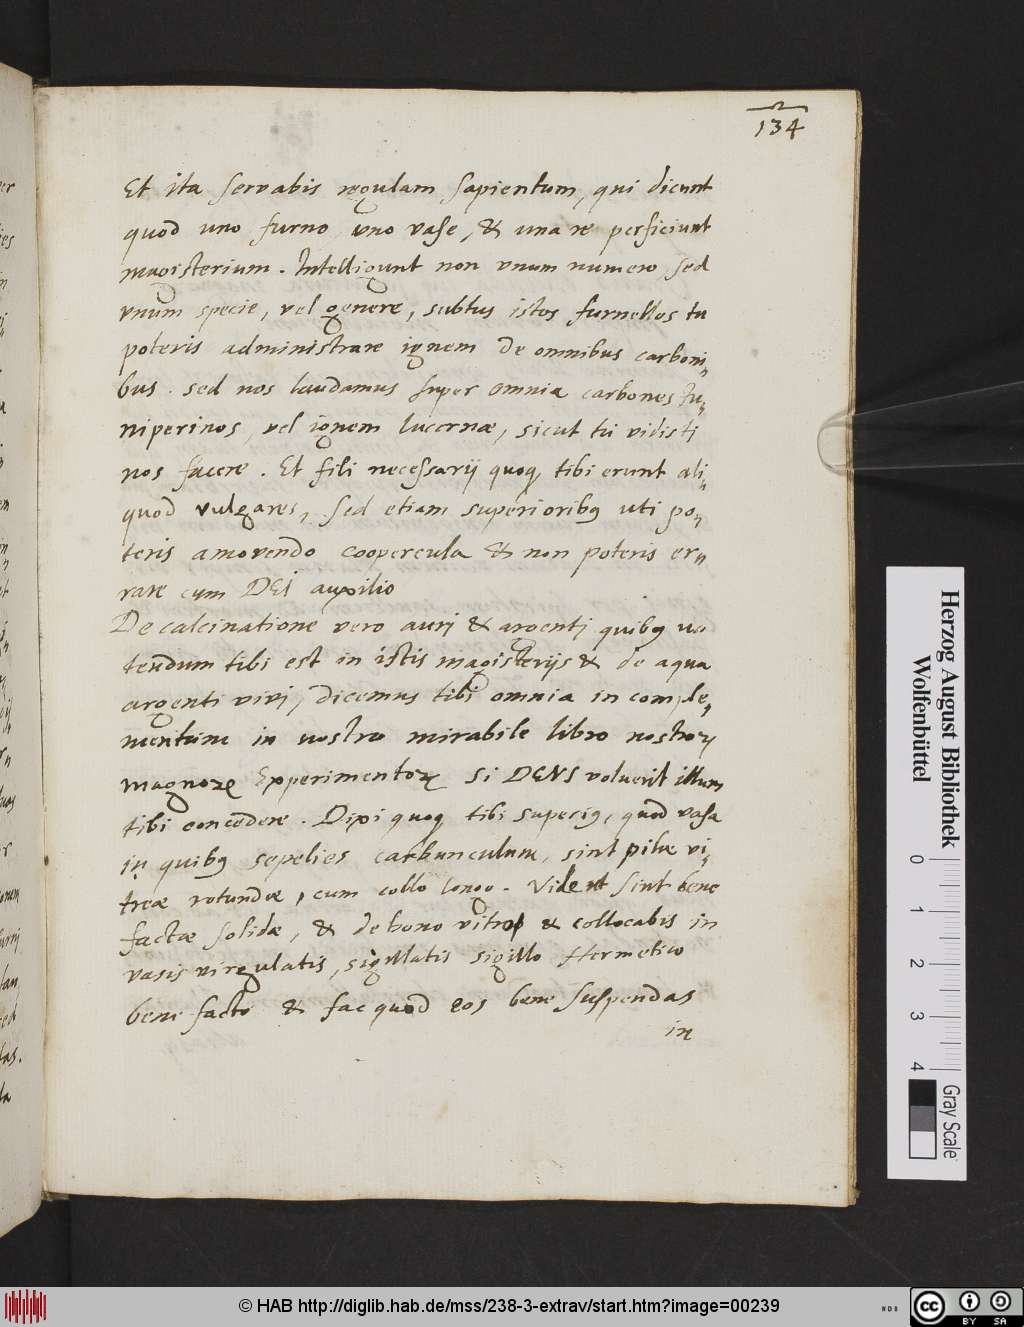 134
Et ita servabis regulam sapientum, qui dicunt
quod uno furno, uno vase, & una re perficiunt
magisterium. Intelligunt non vnum numero sed
vnum specie, vel genere, subtus istos furnellos tu
poteris administrare ignem de omnibus carboni„
bus. sed nos laudamus super omnia carbones Iu„
niperinos, vel ignem lucernæ, sicut tu vidisti
nos facere. Et fili necessarij quoq tibi erunt ali„
quod vulgares, sed etiam superioribq uti po„
teris amovendo coopercula & non poteris er„
rare cum DEI auxilio
De calcinatione vero auri & argenti quibq u„
tendum tibi est in istis magisterijs & de aqua
argenti vivi, dicemus tibi omnia in comple„
mentum in nostro mirabile libro nostroꝝ
magnoꝝ Experimentoꝝ si DEUS voluerit illum
tibi concedere. Dixi quoq tibi superiq, quod vasa
in quibq sepelies carbunculum, sint pilæ vi„
treæ rotundæ, cum collo longo. Videat sint bene
factæ solidæ, & de bono vitro & collocabis in
vasis viregulatis, sigillatis sigillo Hermetico
bene facto & fac quod eos bene suspendas
in
Herzog August Bibliothek
Wolfenbüttel
0 1 2 3 4
Gray Scale
© HAB http://diglib.hab.de/mss/238-3-extrav/start.htm?image=00239
cc BY SA